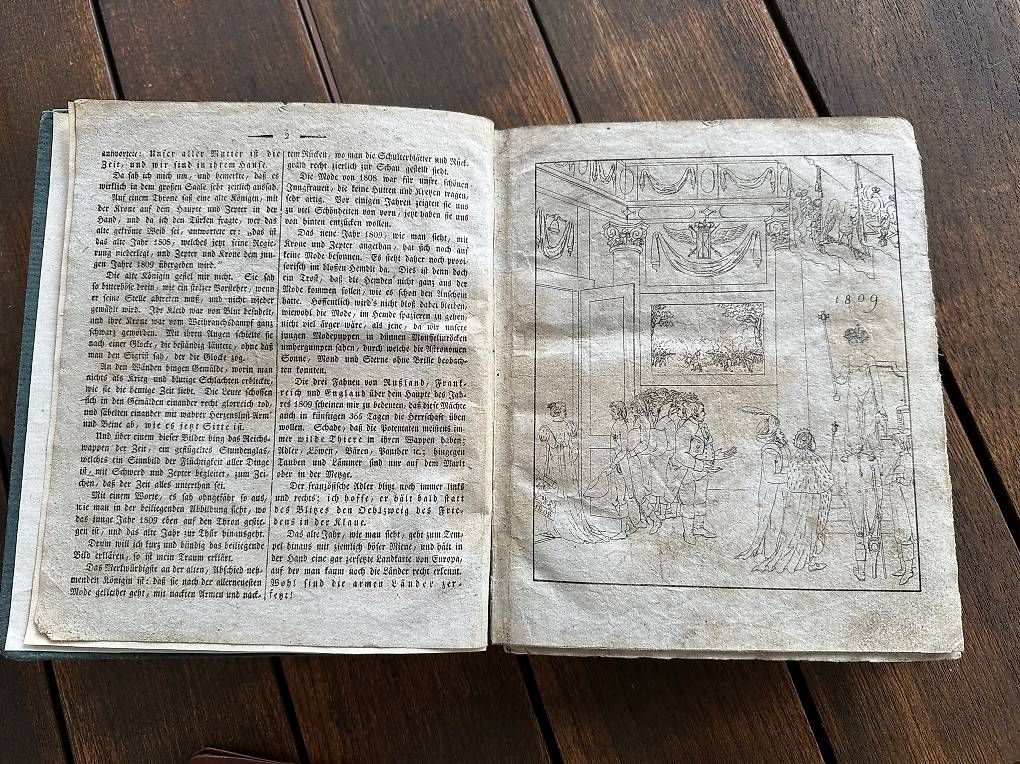 3
antwortete: Unser aller Mutter ist die
Zeit, und wir sind in ihrem Hause.
Da sah ich mich um, und bemerkte, daß es
wirklich in dem großen Saale sehr zeitlich aussah.
Auf einem Throne saß eine alte Königin, mit
der Krone auf dem Haupte und Zepter in der
Hand, und da ich den Türken fragte, wer das
alte gekrönte Weib sei, antwortete er: „das ist
das alte Jahr 1808, welches jetzt seine Regie-
rung niederlegt, und Zepter und Krone dem jun-
gen Jahre 1809 übergeben wird.“
Die alte Königin gefiel mir nicht. Sie sah
so bitterböse drein, wie ein stolzer Vorsteher, wenn
er seine Stelle abtreten muß, und nicht wieder
gewählt wird. Ihr Kleid war von Blut besudelt,
und ihre Krone war vom Weihrauchsdampf ganz
schwarz geworden. Mit ihren Augen schielte sie
nach einer Glocke, die beständig läutete, ohne daß
man den Sigrist sah, der die Glocke zog.
An den Wänden hingen Gemälde, worin man
nichts als Krieg und blutige Schlachten erblickte,
wie sie die heutige Zeit liebt. Die Leute schossen
sich in den Gemälden einander recht glorreich tod,
und säbelten einander mit wahrer Herzenslust Arm
und Beine ab, wie es jetzt Sitte ist.
Und über einem dieser Bilder hing das Reichs-
wappen der Zeit, ein geflügeltes Stundenglas,
welches ein Sinnbild der Flüchtigkeit aller Dinge
ist, mit Schwerd und Zepter begleitet, zum Zei-
chen, daß der Zeit alles unterthan sei.
Mit einem Worte, es sah ohngefähr so aus,
wie man in der beiliegenden Abbildung sieht, wo
das junge Jahr 1809 eben auf den Thron gestie-
gen ist, und das alte Jahr zur Thür hinausgeht.
Drum will ich kurz und bündig das beiliegende
Bild erklären, so ist mein Traum erklärt.
Das Merkwürdigste an der alten, Abschied neh-
menden Königin ist: daß sie nach der allerneuesten
Mode gekleidet geht, mit nackten Armen und nack-
tem Rücken, wo man die Schulterblätter und Rück-
grath recht zierlich zur Schau gestellt sieht.
Die Mode von 1808 war für unsre schönen
Jungfrauen, die keine Hutten und Kretzen tragen,
sehr artig. Vor einigen Jahren zeigten sie uns
zu viel Schönheiten von vorn, jetzt haben sie uns
von hinten entzücken wollen.
Das neue Jahr 1809, wie man sieht, mit
Krone und Zepter angethan, hat sich noch auf
keine Mode besonnen. Es steht daher noch provi-
sorisch im bloßen Hemdli da. Dies ist denn doch
ein Trost, daß die Hemden nicht ganz aus der
Mode kommen sollen, wie es schon den Anschein
hatte. Hoffentlich wird's nicht bloß dabei bleiben,
wiewohl die Mode, im Hemde spazieren zu gehen,
nicht viel ärger wäre, als jene, da wir unsere
jungen Modepuppen in dünnen Mousselinröcken
umhergumpen sahen, durch welche die Astronomen
Sonne, Mond und Sterne ohne Brille beobach-
ten konnten.
Die drei Fahnen von Rußland, Frank-
reich und England über dem Haupte des Jah-
res 1809 scheinen mir zu bedeuten, daß diese Mächte
auch in künftigen 365 Tagen die Herrschaft üben
wollen. Schade, daß die Potentaten meistens im-
mer wilde Thiere in ihren Wappen haben;
Adler, Löwen, Bären, Panther ꝛc.; hingegen
Tauben und Lämmer sind nur auf dem Markt
oder in der Metzge.
Der französische Adler blitzt noch immer links
und rechts; ich hoffe, er hält bald statt
des Blitzes den Oehlzweig des Frie-
dens in der Klaue.
Das alte Jahr, wie man sieht, geht zum Tem-
pel hinaus mit ziemlich böser Miene, und hält in
der Hand eine gar zersetzte Landkarte von Europa,
auf der man kaum noch die Länder recht erkennt.
Wohl sind die armen Länder zer-
fetzt!
1809